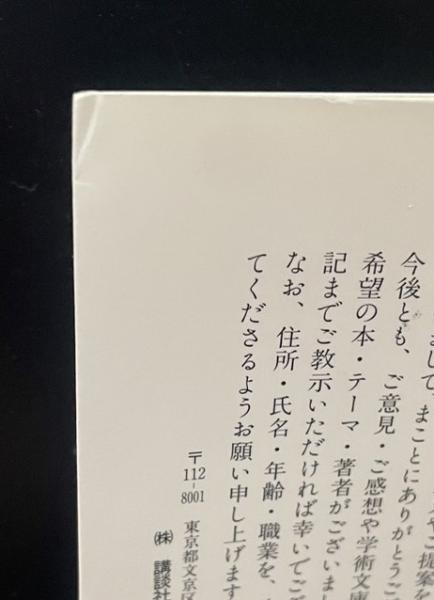 まして、まことにありがとうご
今後とも、ご意見・ご感想や学術文庫
希望の本・テーマ・著者がございまし
記までご教示いただければ幸いでご
なお、住所・氏名・年齢・職業を、
てくださるようお願い申し上げます
〒112-8001 東京都文京区
(株) 講談社